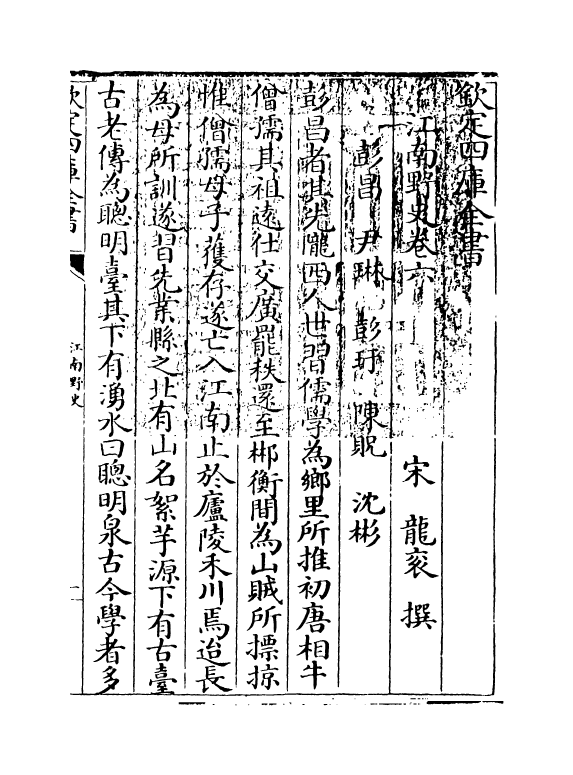 欽定四庫全書
江南野史卷六
宋 龍衮 撰
彭昌 尹琳 彭玕 陳貺 沈彬
彭昌者其先隴西人世習儒學為鄉里所推初唐相牛
僧孺其祖遠仕交廣罷秩還至郴衡間為山賊所摽掠
惟僧孺母子獲存遂亡入江南止於廬陵禾川焉迨長
為母所訓遂習先業縣之北有山名絮芋源下有古臺
古老傳為聰明臺其下有湧水曰聰明泉古今學者多
欽定四庫全書
江南野史
一